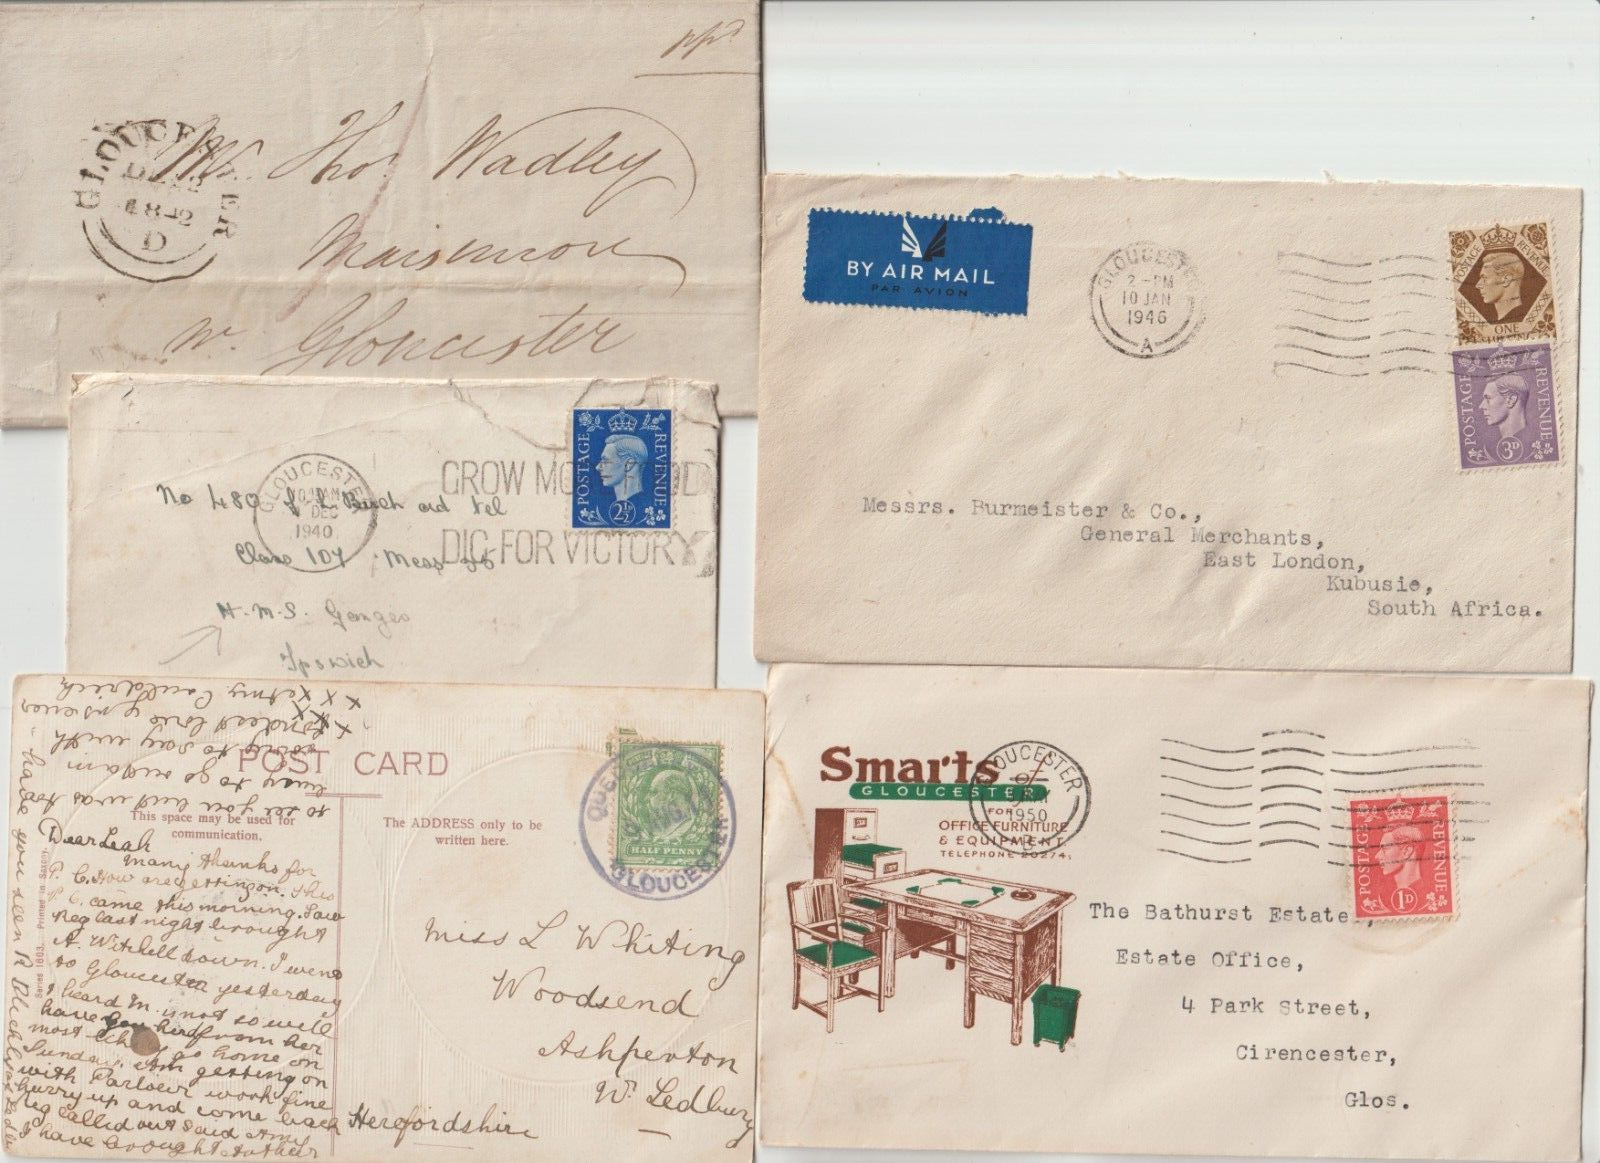 ppd
GLOUCESTER
1842
D
Mr. Thos. Wadley
Maisemore
nr. Gloucester
GLOUCESTER
DEC
1940
GROW MO OD
DIG FOR VICTORY
POSTAGE REVENUE
2½D
No 480
Class 107 Mess
H.M.S. Ganges
Ipswich
BY AIR MAIL
PAR AVION
GLOUCESTE
2 -PM
10 JAN
1946
A
POSTAGE REVENUE
ONE
POSTAGE REVENUE
3D
Messrs. Burmeister & Co.,
General Merchants,
East London,
Kubusie,
South Africa.
POST CARD
This space may be used for
communication.
The ADDRESS only to be
written here.
HALF PENNY
GLOUCESTER
Series 1603. Printed in Saxony.
Dear Leah
Many thanks for
P. C. How are getting on. This
C. came this morning. Saw
Reg last night brought
A. Witchell down. I went
to Gloucester yesterday
I heard M. is not so well
have you heard from her
most go home on
Sunday. Am getting on
with Parlour work fine
hurry up and come back
Reg called out said
I have brought
to see you but was too
busy to go
to say with
kindest love
x x x
have you seen R
Miss L Whiting
Woodsend
Ashperton
Nr. Ledbury
Herefordshire
Smarts of
GLOUCESTER
FOR
OFFICE FURNITURE
& EQUIPMENT
TELEPHONE 20274.
GLOUCESTER
1950
POSTAGE REVENUE
1D
The Bathurst Estate,
Estate Office,
4 Park Street,
Cirencester,
Glos.